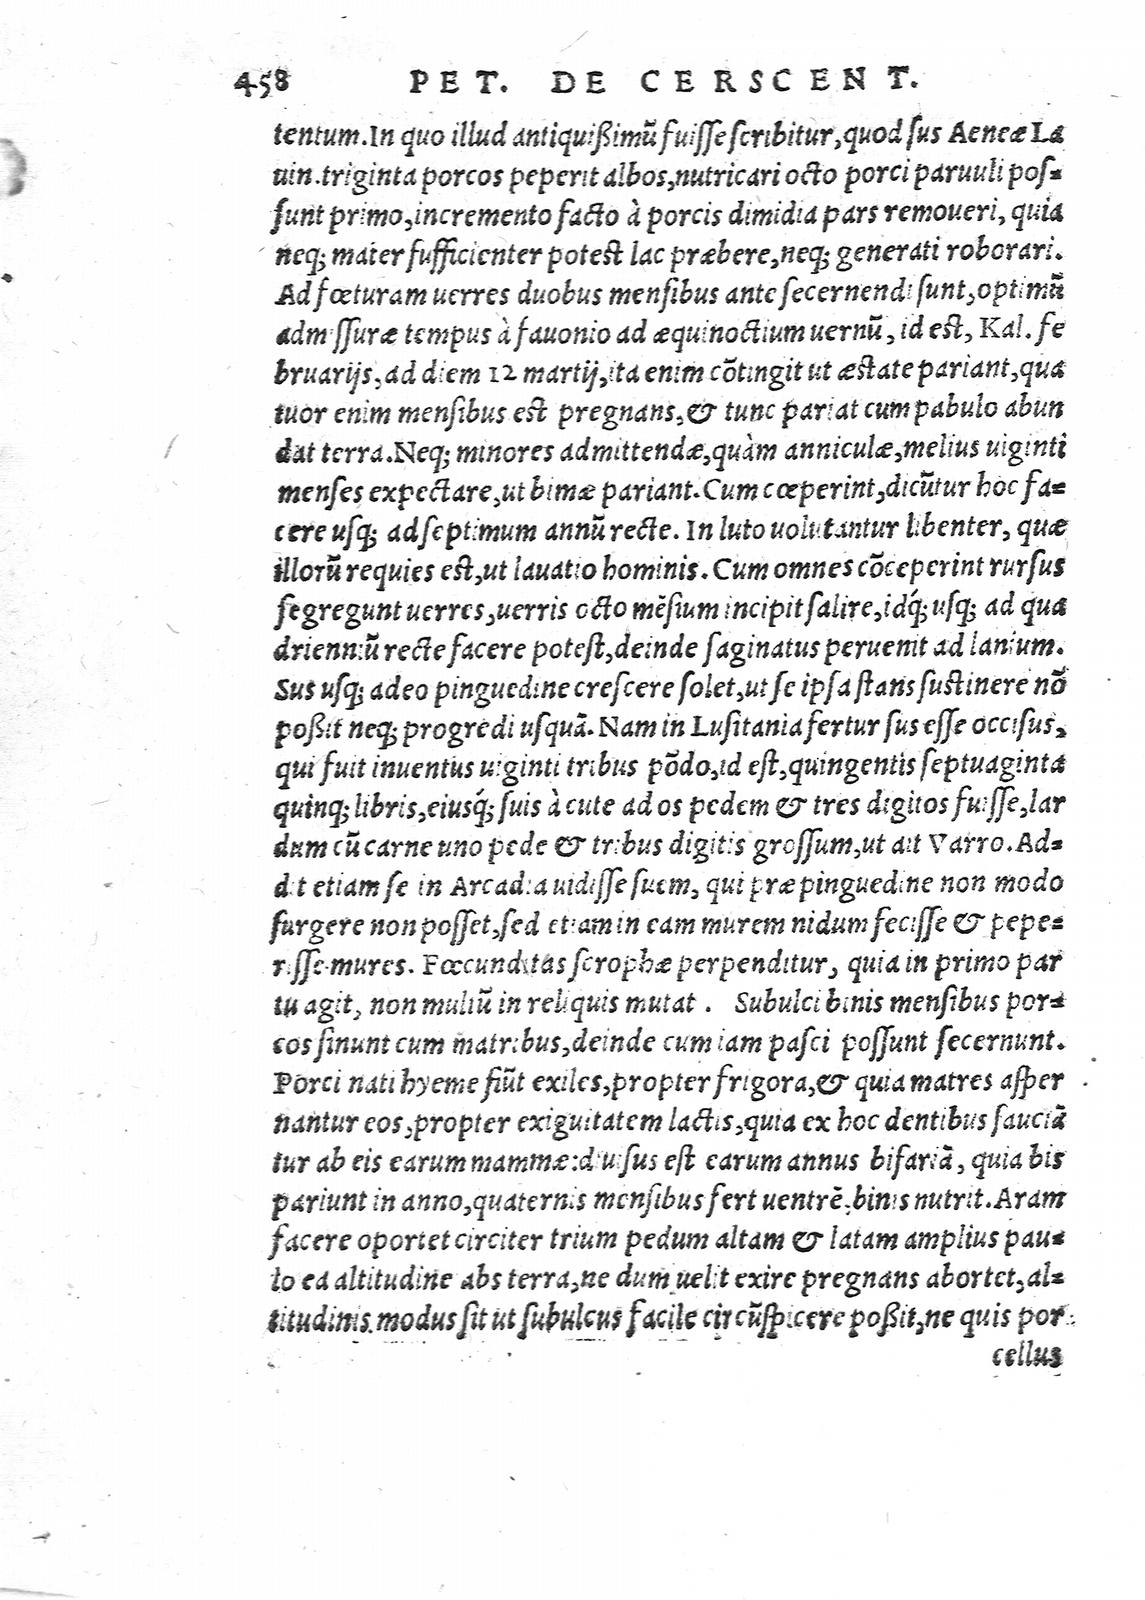 458 PET. DE CERSCENT.
tentum.In quo illud antiquißimũ fuiſſe ſcribitur,quod ſus Aeneæ La
uin.triginta porcos peperit albos,nutricari octo porci paruuli poſ=
ſunt primo,incremento facto à porcis dimidia pars remoueri, quia
neq; mater ſufficienter poteſt lac præbere,neq; generati roborari.
Ad fœturam uerres duobus menſibus ante ſecernendi ſunt,optimũ
admiſſuræ tempus à fauonio ad æquinoctium uernũ, id eſt, Kal. fe
bruarijs, ad diem 12 martij,ita enim cõtingit ut æſtate pariant,qua
tuor enim menſibus eſt pregnans,& tunc pariat cum pabulo abun
dat terra.Neq; minores admittendæ,quàm anniculæ,melius uiginti
menſes expectare,ut bimæ pariant.Cum cœperint,dicũtur hoc fa=
cere uſq; ad ſeptimum annũ recte. In luto uolutantur libenter, quæ
illorũ requies eſt,ut lauatio hominis. Cum omnes cõceperint rurſus
ſegregunt uerres,uerris octo mẽſium incipit ſalire,idq́; uſq; ad qua
drienniũ recte facere poteſt,deinde ſaginatus peruenit ad lanium.
Sus uſq; adeo pinguedine creſcere ſolet,ut ſe ipſa ſtans ſuſtinere nõ
poßit neq; progredi uſquã. Nam in Luſitania fertur ſus eſſe occiſus,
qui fuit inuentus uiginti tribus põdo,id eſt,quingentis ſeptuaginta
quinq; libris,eiusq́; ſuis à cute ad os pedem & tres digitos fuiſſe,lar
dum cũ carne uno pede & tribus digitis groſſum,ut ait Varro.Ad=
dit etiam ſe in Arcadia uidiſſe ſuem, qui præ pinguedine non modo
ſurgere non poſſet,ſed etiam in eam murem nidum feciſſe & pepe=
riſſe mures. Fœcunditas ſcrophæ perpenditur, quia in primo par
tu agit, non multũ in reliquis mutat . Subulci binis menſibus por=
cos ſinunt cum matribus,deinde cum iam paſci poſſunt ſecernunt.
Porci nati hyeme fiũt exiles,propter frigora,& quia matres aſper
nantur eos,propter exiguitatem lactis,quia ex hoc dentibus ſauciã
tur ab eis earum mammæ:diuiſus eſt earum annus bifariã, quia bis
pariunt in anno,quaternis menſibus fert uentrẽ,binis nutrit.Aram
facere oportet circiter trium pedum altam & latam amplius pau=
lo ea altitudine abs terra,ne dum uelit exire pregnans abortet,al=
titudinis modus ſit ut ſubulcus facile circũſpicere poßit,ne quis por
cellus